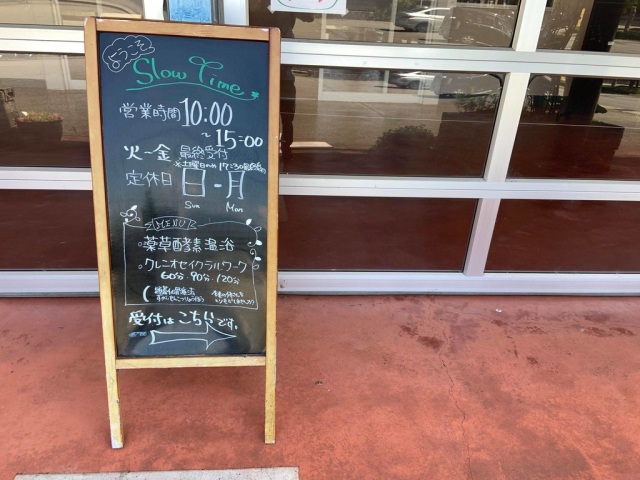 ようこそ
Slow Time
営業時間 10:00
~15:00
火ー金 最終受付
※土曜日のみ17:30最終受付
定休日 日-月
Sun Mon
MENU
・薬草酵素温浴
・クレニオセイクラルワーク
60分・90分・120分
受付はこちらです。